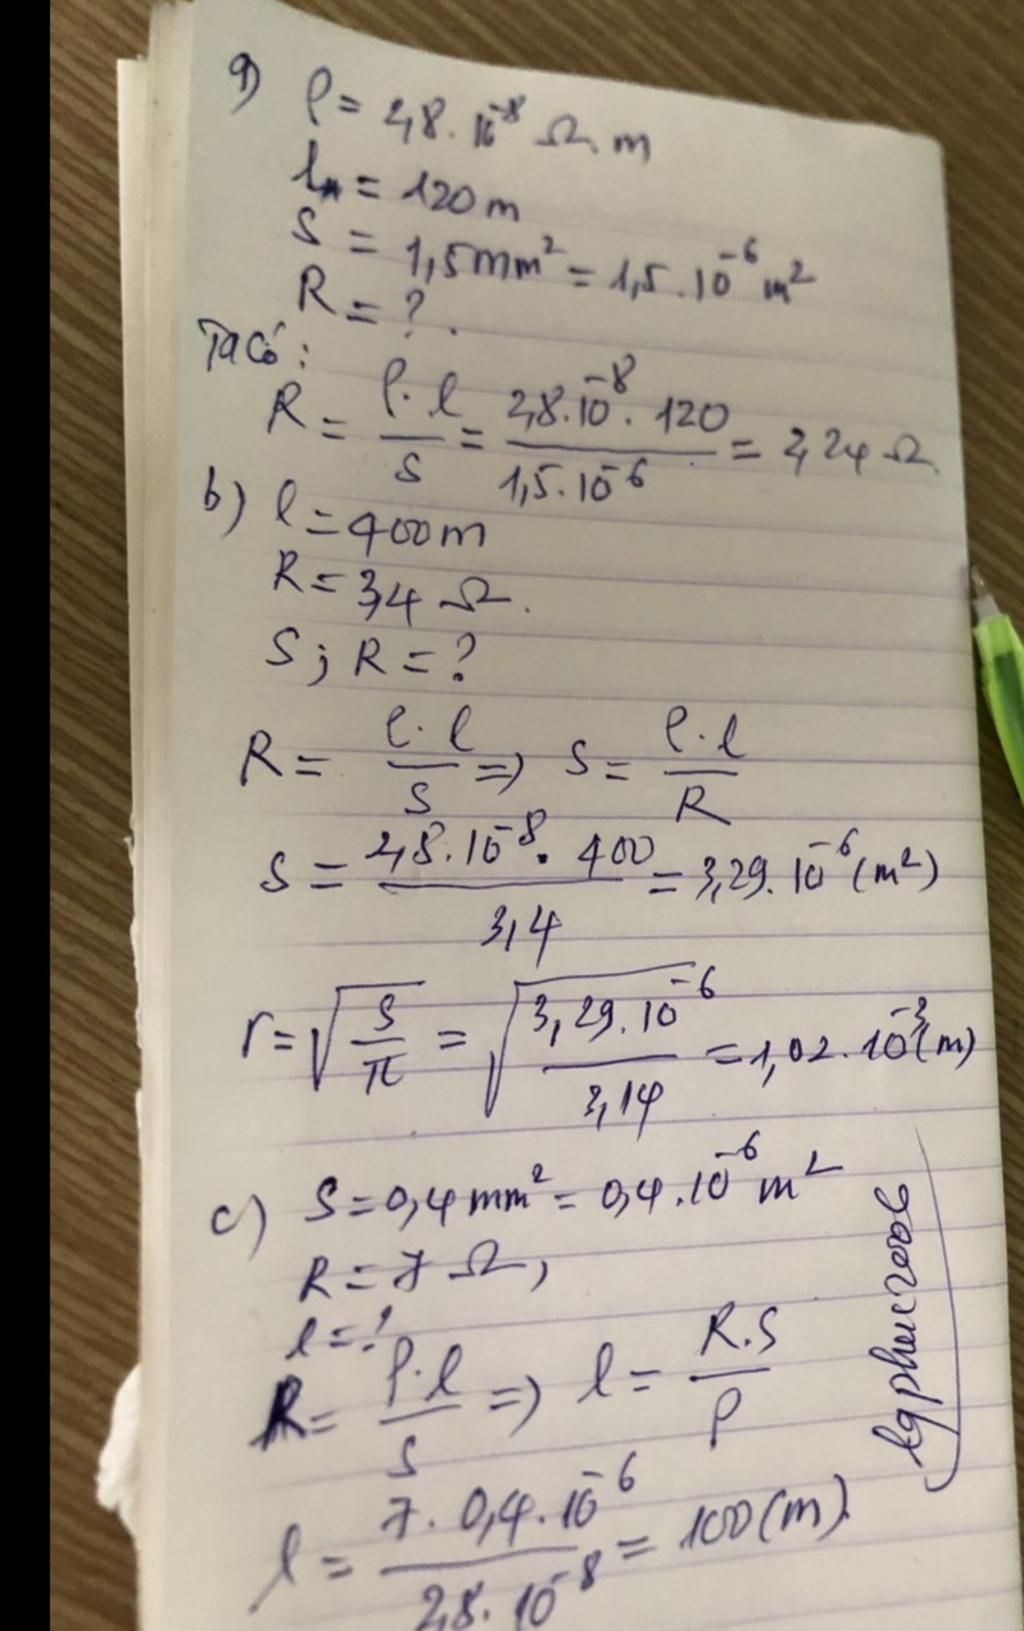 a) ρ = 2,8.10⁻⁸ Ω.m
l = 120 m
S = 1,5mm² = 1,5.10⁻⁶ m²
R = ?.
Ta có:
R = ρ.l / S = 2,8.10⁻⁸.120 / 1,5.10⁻⁶ = 2,24 Ω.
b) l = 400m
R = 3,4 Ω.
S; R = ?
R = ρ.l / S => S = ρ.l / R
S = 2,8.10⁻⁸.400 / 3,4 = 3,29.10⁻⁶ (m²)
r = √(S / π) = √(3,29.10⁻⁶ / 3,14) = 1,02.10⁻³(m)
c) S = 0,4mm² = 0,4.10⁻⁶ m²
R = 7 Ω,
l = ?
R = ρ.l / S => l = R.S / ρ
l = 7.0,4.10⁻⁶ / 2,8.10⁻⁸ = 100(m).